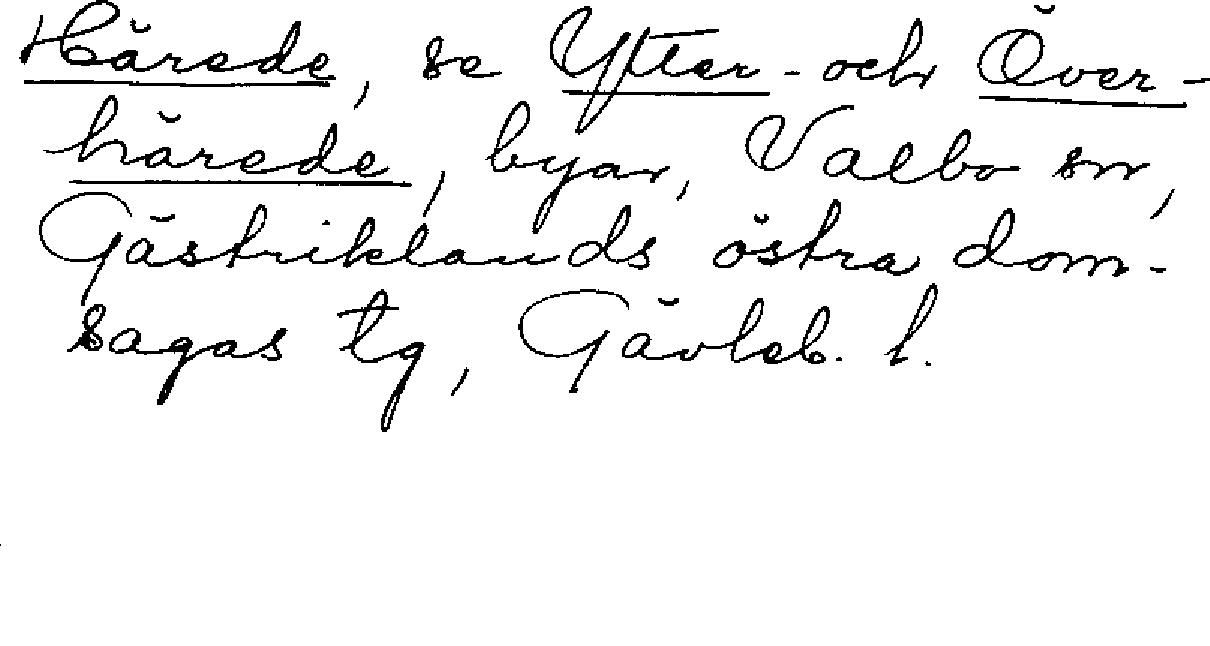 Härede, se Ytter- och Över-
härede, byar, Valbo sn,
Gästriklands östra dom-
sagas tg, Gävleb. l.